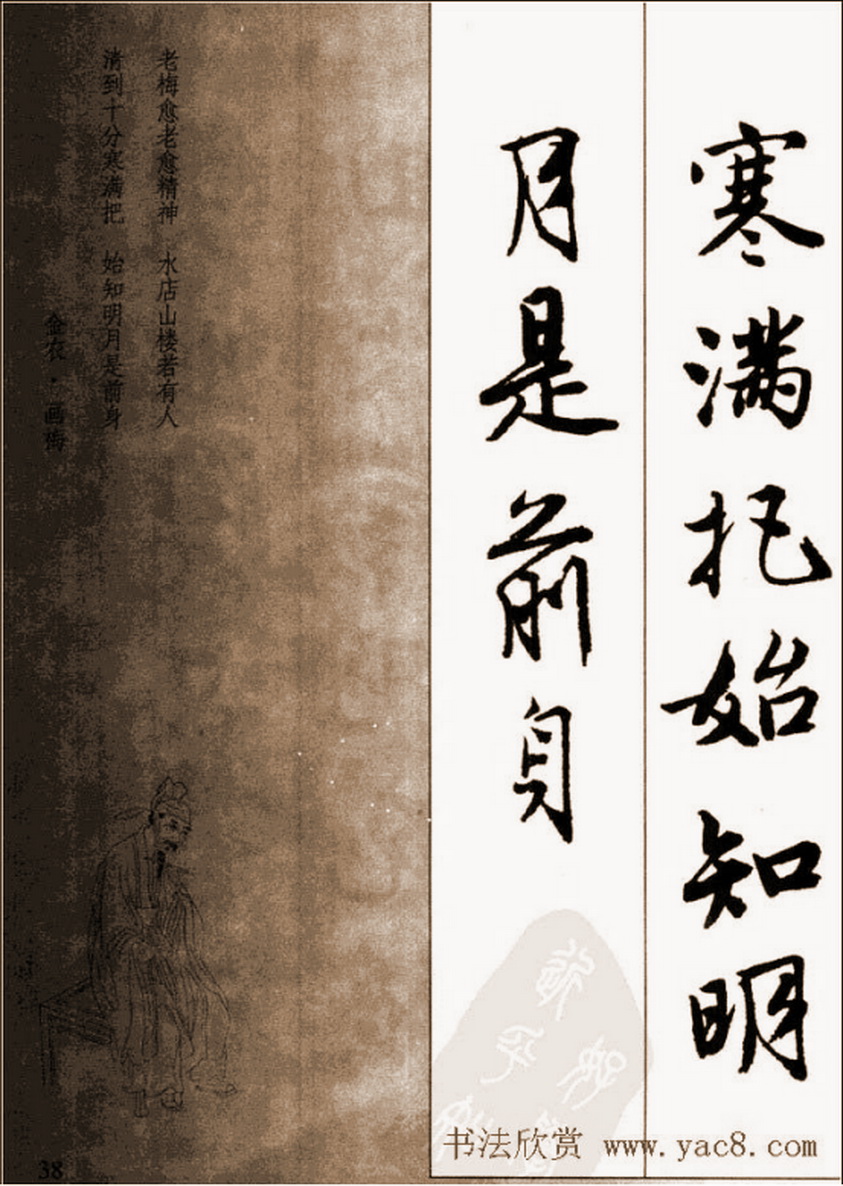 寒满把始知明
月是前身
老梅愈老愈精神 水店山楼若有人
清到十分寒满把 始知明月是前身
金农·画梅
38
书法欣赏 www.yac8.com